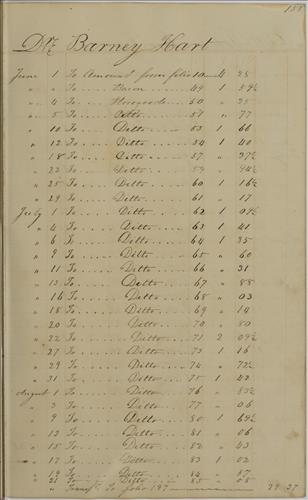 Dr. Barney Hart
June 1 To Amount from folio 10 4 25
" " To Bacon 49 1 59½
" 4 To 50 " 25
" 5 To Ditto 51 " 77
" 10 To Ditto 53 1 66
" 12 To Ditto 54 1 40
" 18 To Ditto 57 " 37½
" 23 To Ditto 59 " 94½
" 25 To Ditto 60 1 16½
" 29 To Ditto 61 " 17
July 1 To Ditto 62 1 09½
" 4 To Ditto 63 1 41
" 6 To Ditto 64 1 35
" 9 To Ditto 65 " 60
" 11 To Ditto 66 " 31
" 13 To Ditto 67 " 88
" 16 To Ditto 68 " 03
" 18 To Ditto 69 " 19
" 20 To Ditto 70 " 80
" 22 To Ditto 71 2 09½
" 27 To Ditto 73 1 16
" 29 To Ditto 74 " 72½
" 31 To Ditto 75 1 43
August 1 To Ditto 76 "
" 3 To Ditto 77 " 06
" 9 To Ditto 80 " 69½
" 13 To Ditto 81 " 06
" 15 To Ditto 82 " 03
" 17 To Ditto 83 1 02
" 19 To Ditto 84 " 57
" 21 To Ditto 85 " 05
" To folio 187 29 27